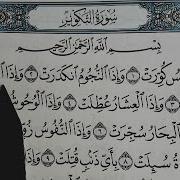 سُورَةُ التَّكْوِيرِ
بِسْمِ اللَّهِ الرَّحْمَٰنِ الرَّحِيمِ
كُوِّرَتْ ١ وَإِذَا النُّجُومُ انكَدَرَتْ ٢ وَإِذَا
٣ وَإِذَا الْعِشَارُ عُطِّلَتْ ٤ وَإِذَا الْوُحُوشُ
الْبِحَارُ سُجِّرَتْ ٦ وَإِذَا النُّفُوسُ
سُئِلَتْ ٨ بِأَيِّ ذَنبٍ قُتِلَتْ ٩ وَإِذَا